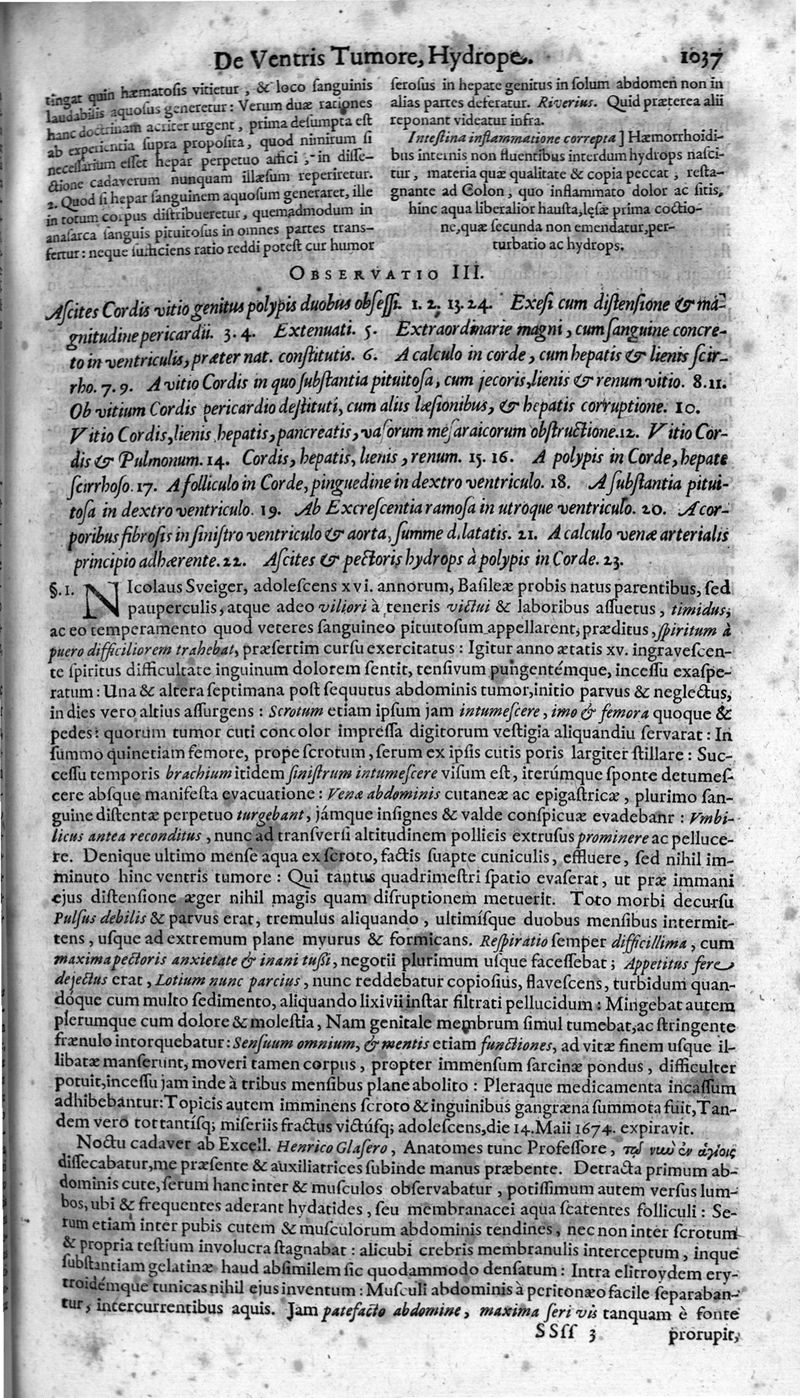 De Ventris Tumore, Hydrope.
1037
tingat quin hæmatosis vitietur , & loco sanguinis
laudabilis aquosus generetur : Verum duæ rationes
hanc doctrinam acriter urgent , prima desumpta est
ab experientia supra proposita, quod nimirum si
necessarium esset hepar perpetuo affici , in disse-
ctione cadaverum nunquam illæsum reperiretur.
2. Quod si hepar sanguinem aquosum generaret, ille
in totum corpus distribueretur, quemadmodum in
anasarca sanguis pituitosus in omnes partes trans-
fertur : neque sufficiens ratio reddi potest cur humor
serosus in hepate genitus in solum abdomen non in
alias partes deferatur. Riverius. Quid præterea alii
reponant videatur infra.
Intestina inflammatione correpta ] Hæmorrhoidi-
bus internis non fluentibus interdum hydrops nasci-
tur , materia quæ qualitate & copia peccat , resta-
gnante ad Colon ; quo inflammato dolor ac sitis,
hinc aqua liberalior hausta, læsæ prima coctio-
ne, quæ secunda non emendatur, per-
turbatio ac hydrops.
OBSERVATIO III.
Ascites Cordis vitio genitus polypis duobus obsessi. 1. 2. 13. 24. Exesi cum distensione & ma-
gnitudine pericardii. 3. 4. Extenuati. 5. Extraordinarie magni, cum sanguine concre-
to in ventriculis, præter nat. constitutis. 6. A calculo in corde, cum hepatis & lienis scir-
rho. 7. 9. A vitio Cordis in quo substantia pituitosa, cum jecoris, lienis & renum vitio. 8. 11.
Ob vitium Cordis pericardio destituti, cum aliis læsionibus, & hepatis corruptione. 10.
Vitio Cordis, lienis hepatis, pancreatis, vasorum mesaraicorum obstructione. 12. Vitio Cor-
dis & Pulmonum. 14. Cordis, hepatis, lienis, renum. 15. 16. A polypis in Corde, hepate
scirrhoso. 17. A folliculo in Corde, pinguedine in dextro ventriculo. 18. A substantia pitui-
tosa in dextro ventriculo. 19. Ab Excrescentia ramosa in utroque ventriculo. 20. A cor-
poribus fibrosis in sinistro ventriculo & aorta, summe dilatatis. 21. A calculo venæ arterialis
principio adhærente. 22. Ascites & pectoris hydrops à polypis in Corde. 23.
§. 1. NIcolaus Sveiger, adolescens xvi. annorum, Basileæ probis natus parentibus, sed
pauperculis, atque adeo viliori à teneris victui & laboribus assuetus, timidus,
ac eo temperamento quod veteres sanguineo pituitosum appellarent, præditus, spiritum à
puero difficiliorem trahebat, præsertim cursu exercitatus : Igitur anno ætatis xv. ingravescen-
te spiritus difficultate inguinum dolorem sentit, tensivum pungentémque, incessu exaspe-
ratum : Una & altera septimana post sequutus abdominis tumor, initio parvus & neglectus,
in dies vero altius assurgens : Scrotum etiam ipsum jam intumescere, imo & femora quoque &
pedes : quorum tumor cuti concolor impressa digitorum vestigia aliquandiu servarat : In
summo quinetiam femore, prope scrotum, serum ex ipsis cutis poris largiter stillare : Suc-
cessu temporis brachium itidem sinistrum intumescere visum est, iterúmque sponte detumes-
cere absque manifesta evacuatione : Venæ abdominis cutaneæ ac epigastricæ, plurimo san-
guine distentæ perpetuo turgebant, jámque insignes & valde conspicuæ evadebant : Umbi-
licus antea reconditus, nunc ad transversi altitudinem pollicis extrusus prominere ac pelluce-
re. Denique ultimo mense aqua ex scroto, factis suapte cuniculis, effluere, sed nihil im-
minuto hinc ventris tumore : Qui tantus quadrimestri spatio evaserat, ut præ immani
ejus distensione æger nihil magis quam disruptionem metuerit. Toto morbi decursu
Pulsus debilis & parvus erat, tremulus aliquando, ultimísque duobus mensibus intermit-
tens, usque ad extremum plane myurus & formicans. Respiratio semper difficillima, cum
maxima pectoris anxietate & inani tussi, negotii plurimum usque facessebat ; Appetitus fere
dejectus erat, Lotium nunc parcius, nunc reddebatur copiosius, flavescens, turbidum quan-
dóque cum multo sedimento, aliquando lixivii instar filtrati pellucidum : Mingebat autem
plerumque cum dolore & molestia, Nam genitale membrum simul tumebat, ac stringente
frænulo intorquebatur : Sensuum omnium, & mentis etiam functiones, ad vitæ finem usque il-
libatæ manserunt, moveri tamen corpus, propter immensum sarcinæ pondus, difficulter
potuit, incessu jam inde à tribus mensibus plane abolito : Pleraque medicamenta incassum
adhibebantur : Topicis autem imminens scroto & inguinibus gangræna summota fuit, Tan-
dem vero tot tantísq; miseriis fractus victúsq; adolescens, die 14. Maii 1674. expiravit.
Noctu cadaver ab Excell. Henrico Glasero, Anatomes tunc Professore, τοῦ νυῦ ἐν ἁγίοις
dissecabatur, me præsente & auxiliatrices subinde manus præbente. Detracta primum ab-
dominis cute, serum hanc inter & musculos observabatur, potissimum autem versus lum-
bos, ubi & frequentes aderant hydatides, seu membranacei aqua scatentes folliculi : Se-
rum etiam inter pubis cutem & musculorum abdominis tendines, nec non inter scrotum
& propria testium involucra stagnabat : alicubi crebris membranulis interceptum, inque
substantiam gelatinæ haud absimilem sic quodammodo densatum : Intra elitroydem ery-
troidémque tunicas nihil ejus inventum : Musculi abdominis à peritonæo facile separaban-
tur, intercurrentibus aquis. Jam patefacto abdomine, maxima seri vis tanquam è fonte
SSss 3
prorupit,